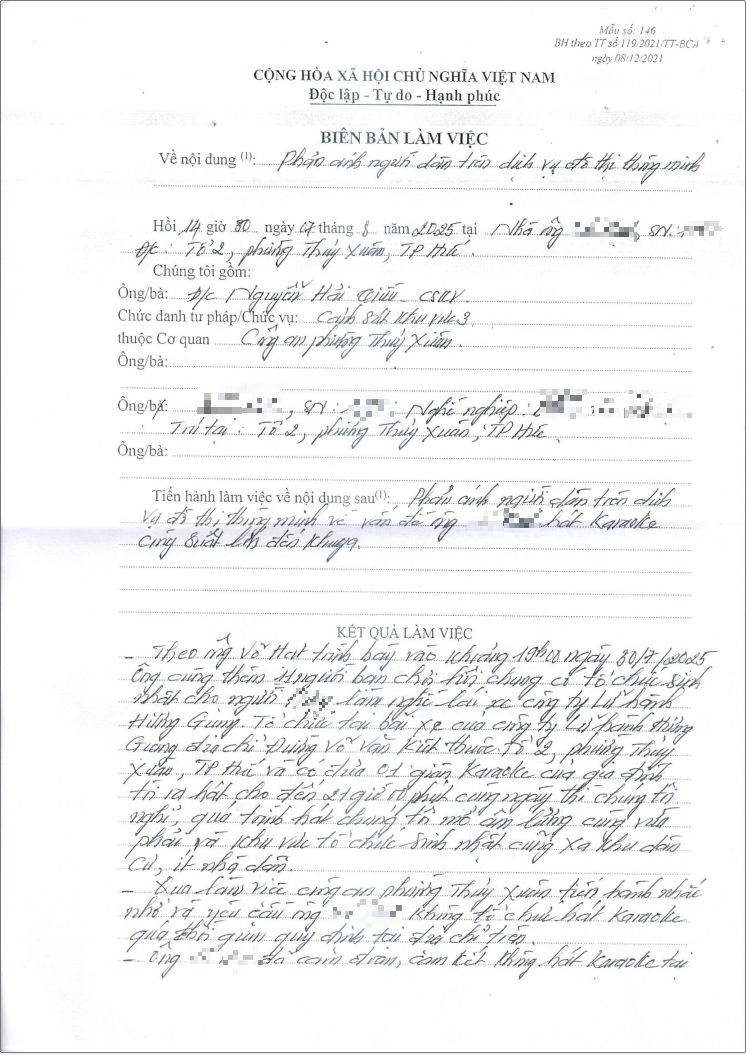 Mẫu số: 146
BH theo TT số 119/2021/TT-BCA
ngày 08/12/2021
CỘNG HÒA XÃ HỘI CHỦ NGHĨA VIỆT NAM
Độc lập - Tự do - Hạnh phúc
BIÊN BẢN LÀM VIỆC
Về nội dung (1): Phản ánh người dân trên dịch vụ đô thị thông minh
Hồi 14 giờ 30 ngày 07 tháng 8 năm 2025 tại Nhà ông , SN:
Đ/c: Tổ 2, phường Thủy Xuân, TP Huế.
Chúng tôi gồm:
Ông/bà: Đ/c Nguyễn Hải - CSKV
Chức danh tư pháp/Chức vụ: Cảnh sát khu vực 3
thuộc Cơ quan Công an phường Thủy Xuân
Ông/bà:
Ông/bà: , SN: Nghề nghiệp:
Trú tại: Tổ 2, phường Thủy Xuân, TP Huế.
Ông/bà:
Tiến hành làm việc về nội dung sau(1): Phản ánh người dân trên dịch
vụ đô thị thông minh về vấn đề ông hát Karaoke
công suất lớn đến khuya.
KẾT QUẢ LÀM VIỆC
- Theo ông Võ Hạt trình bày vào khoảng 19h00 ngày 30/7/2025
Ông cùng thêm 11 người bạn chơi chung có tổ chức sinh
nhật cho người làm nghề lái xe công ty Lữ hành
Hương Giang. Tổ chức tại bãi xe của công ty Lữ hành Hương
Giang địa chỉ Đường Võ Văn Kiệt thuộc tổ 2, phường Thủy
Xuân, TP Huế và có đưa 01 giàn Karaoke của gia đình
tôi ra hát cho đến 21 giờ 00 phút cùng ngày thì chúng tôi
nghỉ, quá trình hát chúng tôi mở âm lượng cũng vừa
phải và khu vực tổ chức sinh nhật cũng xa khu dân
cư, ít nhà dân.
- Qua làm việc công an phường Thủy Xuân tiến hành nhắc
nhở và yêu cầu ông không tổ chức hát Karaoke
quá thời gian quy định tại địa chỉ trên.
- Ông đã cam đoan, cam kết không hát Karaoke tại